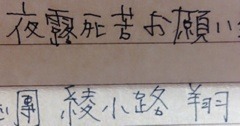 夜露死苦お願い
團 綾小路 翔